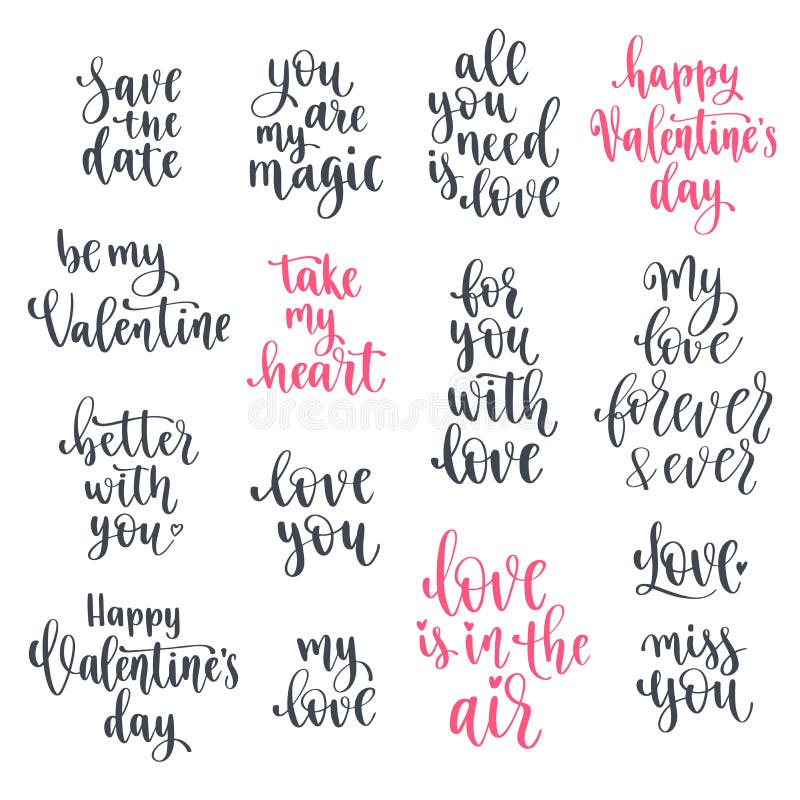 save
the
date
you
are
my
magic
all
you
need
is love
happy
Valentine's
day
be my
Valentine
take
my
heart
for
you
with
love
My
love
forever
& ever
better
with
you
love
you
love
is in the
air
Love
miss
you
Happy
Valentine's
day
my
love
dreamstime